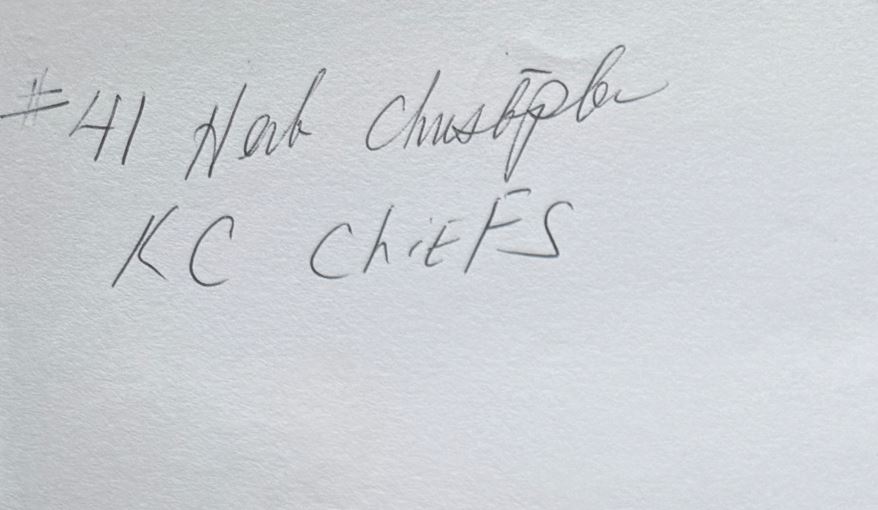 #41 Herb Christopher
KC ChiEFS